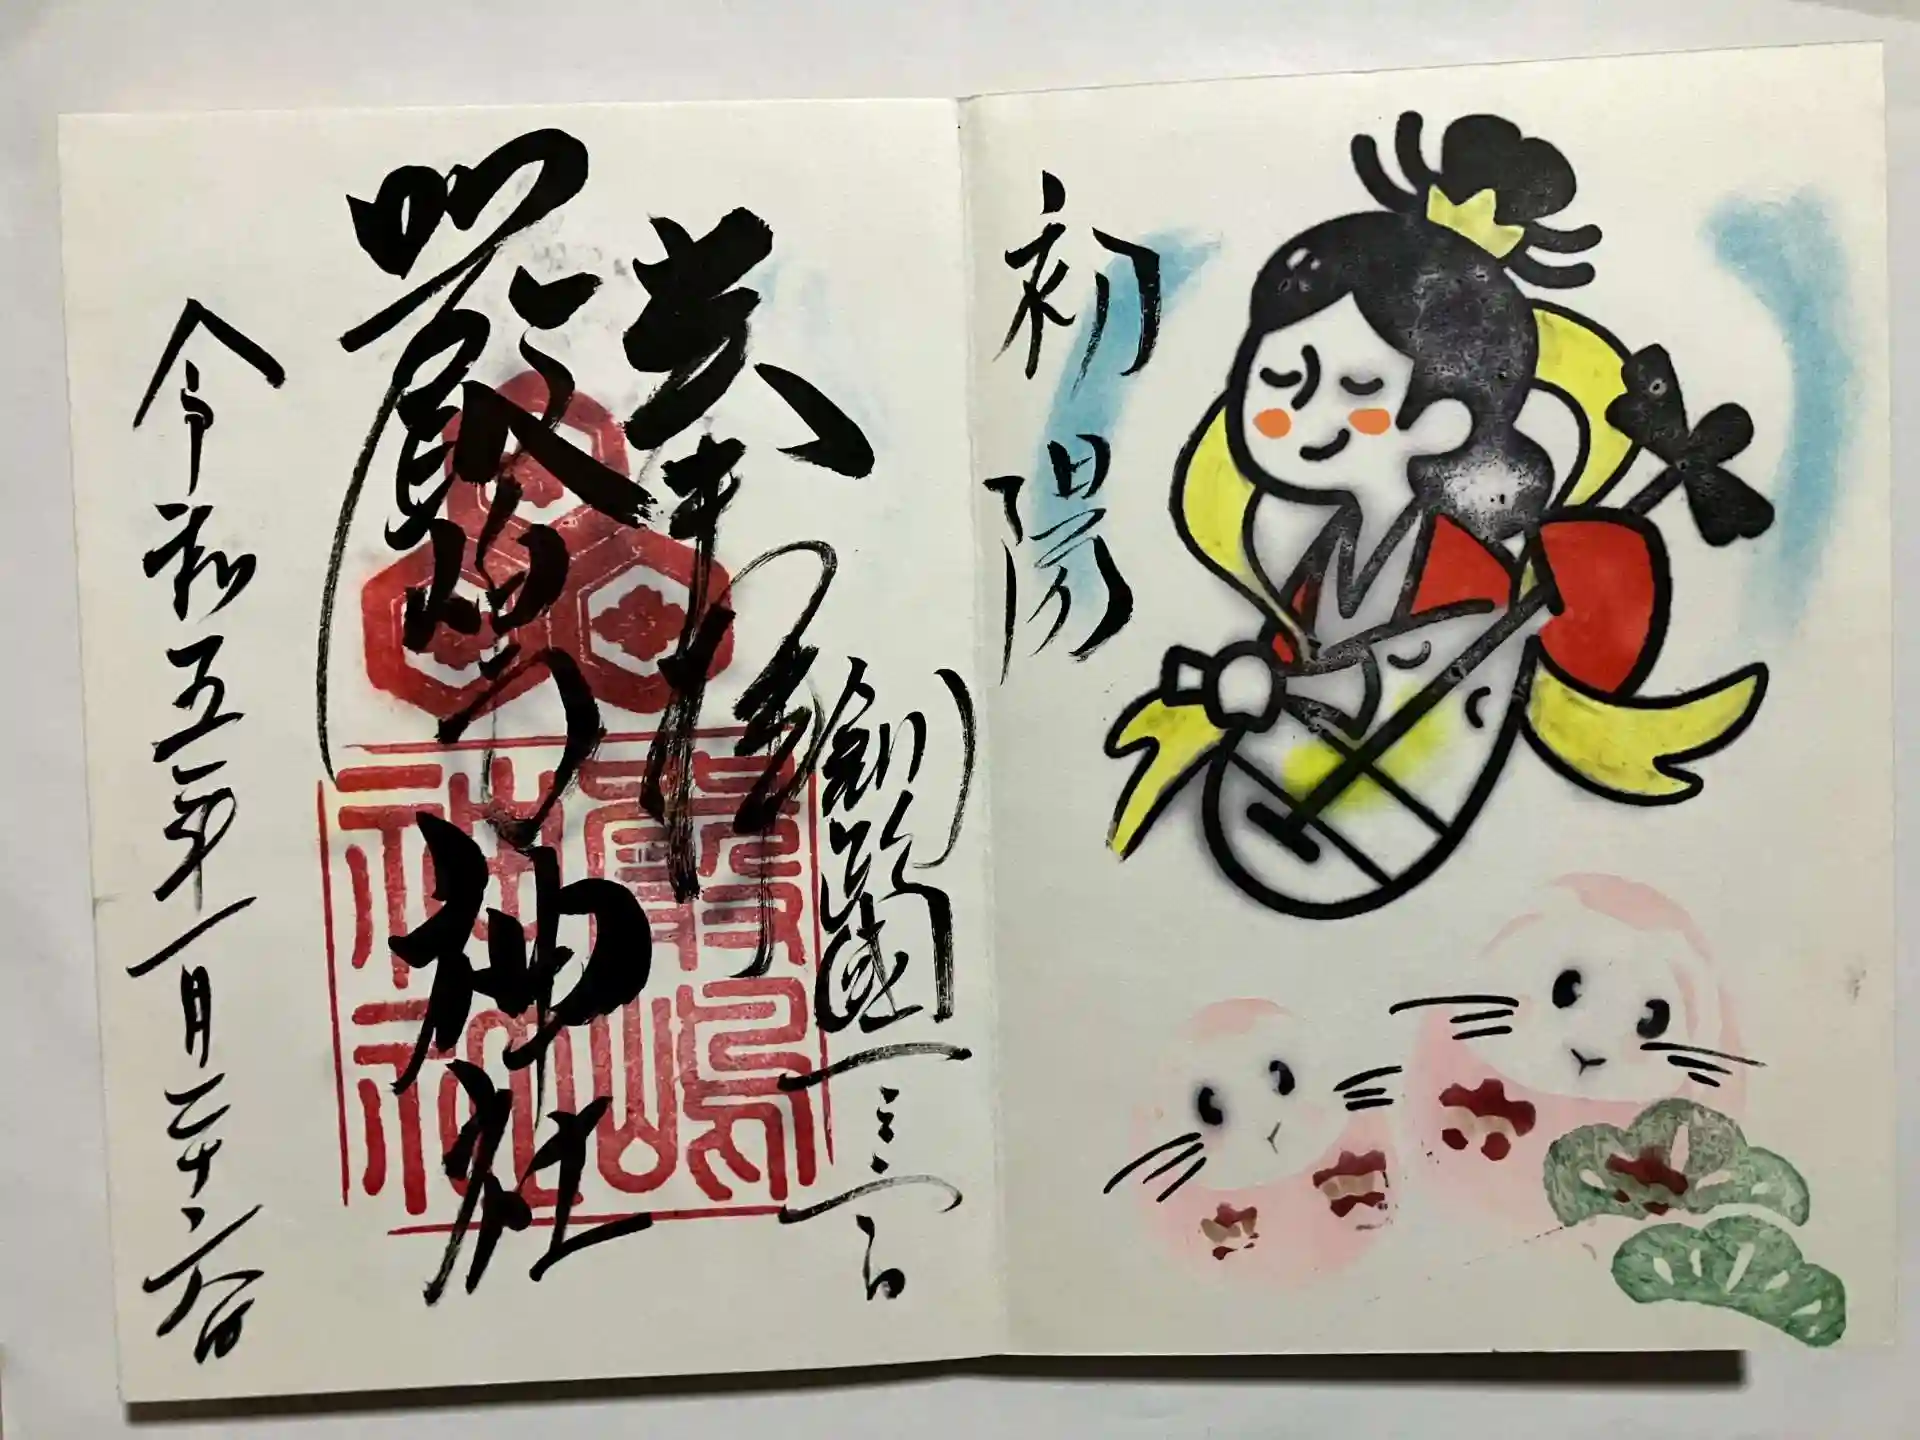 初陽
奉拝
嚴島神社
令和五年一月二十六日
嚴嶋
神社